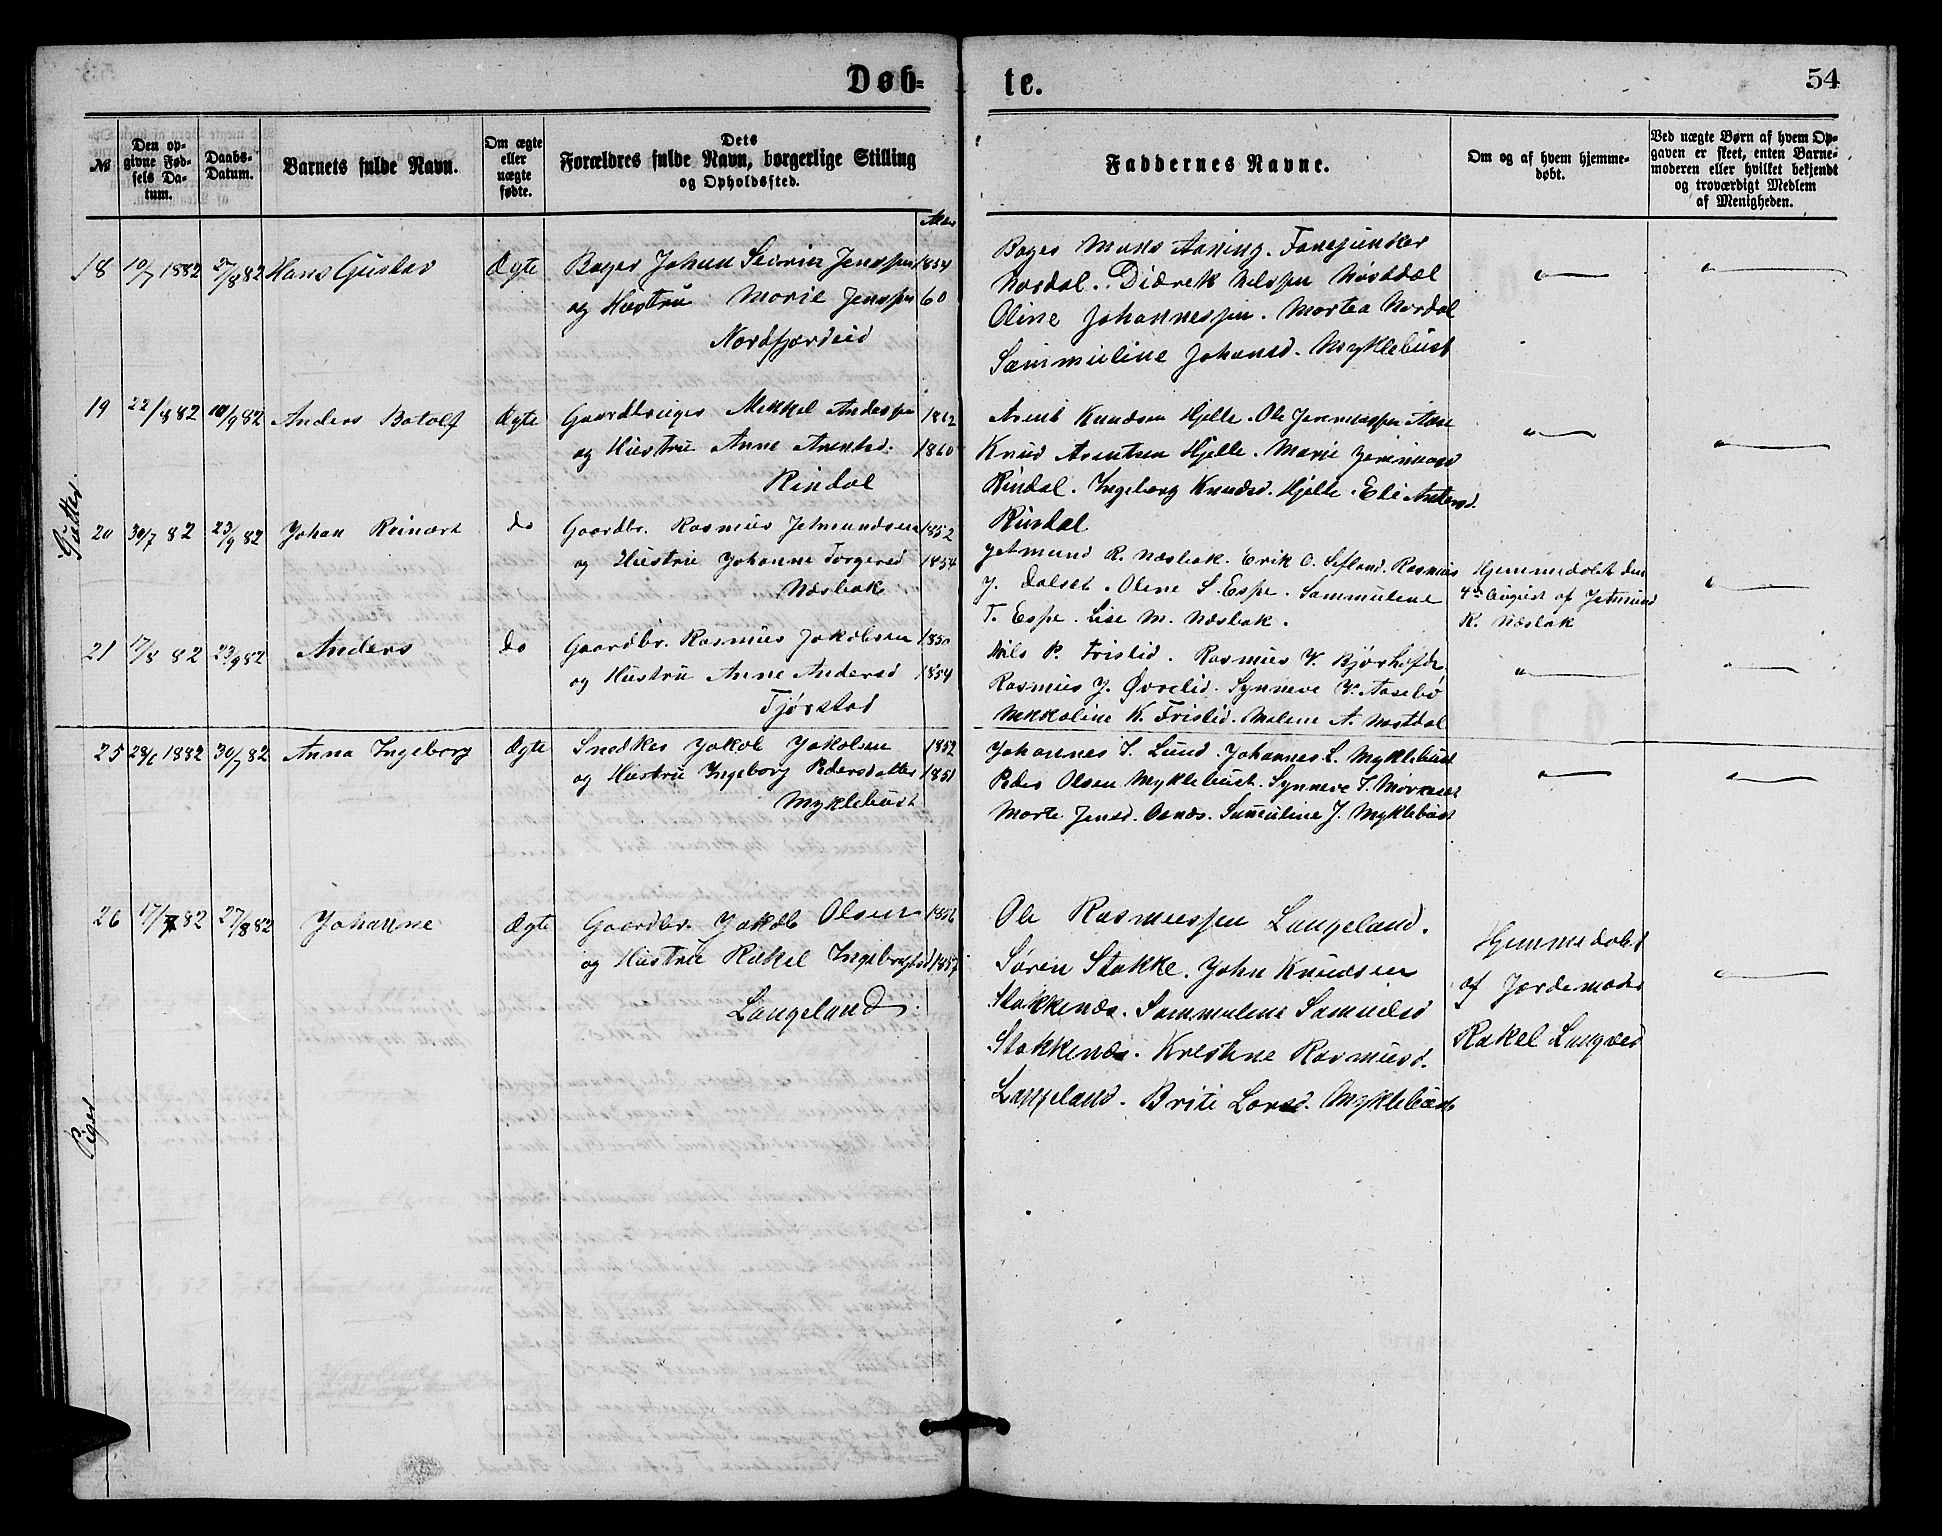 Døb-
te.
54
№
Den op-
givne Fød-
sels Da-
tum.
Daabs-
Datum.
Barnets fulde Navn.
Om ægte
eller
uægte
fødte.
Dets
Forældres fulde Navn, borgerlige Stilling
og Opholdssted.
Faddernes Navne.
Om og af hvem hjemme-
døbt.
Ved uægte Børn af hvem Op-
gaven er skeet, enten Barne-
moderen eller hvilket bekjendt
og troværdigt Medlem
af Menigheden.
Alder
Gutter.
18 10/7 1882 27/8 82 Hans Gustav Ægte
Bager Johan Severin Jenssen 1854
og Hustru Marie Jenssen 60
Nordfjordeid
Bager Mons Aaning. Fanejunker
Nordal. Didrek Nilssen Nøstdal
Oline Johannessen. Martea Nordal
Sammuline Johansd. Myklebust
19 22/8 82 10/9 82 Anders Botolf Ægte
Gaardbruger Mikkel Anderssen 1862
og Hustru Anne Arentsd. 1860
Rindal
Arent Knudsen Hjelle. Ole Jeremiassen Aase
Knud Arentsen Hjelle. Marie Jeremiasd
Rindal. Ingeborg Knudsd. Hjelle. Eli Andersd.
Rindal
20 30/7 82 23/9 82 Johan Reinart do
Gaardbr. Rasmus Jetmundsen 1852
og Hustru Johanne Torgersd 1854
Næsbak
Jetmund R. Næsbak. Erik O. Sefland. Rasmus
J. Dalset. Olene S. Espe. Sammulene
T. Espe. Lise M. Næsbak.
Hjemmedøbt den
4de August af Jetmund
R. Næsbak
21 17/8 82 23/9 82 Anders do
Gaardbr. Rasmus Jakobsen 1850
og Hustru Anne Andersd 1854
Fjørstad
Nils P. Fristid. Rasmus V. Bjørhofde
Rasmus J. Øvrelid. Synneve V. Aasebø
Mekkaline K. Fristid. Malene A. Nøstdal
Piger
25 28/6 1882 30/7 82 Anna Ingeborg Ægte
Snedker Jakob Jakobsen 1852
og Hustru Ingeborg Pedersdatter 1851
Myklebust
Johannes T. Lund. Johannes L. Myklebust
Peder Olsen Myklebust. Synneve T.
Marte Jensd. Osnæs. Sammuline J. Myklebust
26 17/7 82 27/8 82 Johanne Ægte
Gaardbr. Jakob Olsen 1856
og Hustru Rakel Ingebrigtsd 1857
Langeland.
Ole Rasmussen Langeland.
Søren Stokke. John Knudsen
Stokkenæs. Sammulene Samuelsd
Stokkenæs. Krestine Rasmusd.
Langeland. Brite Larsd. Myklebust
Hjemmedøbt
af Jordemoder
Rakel Langved